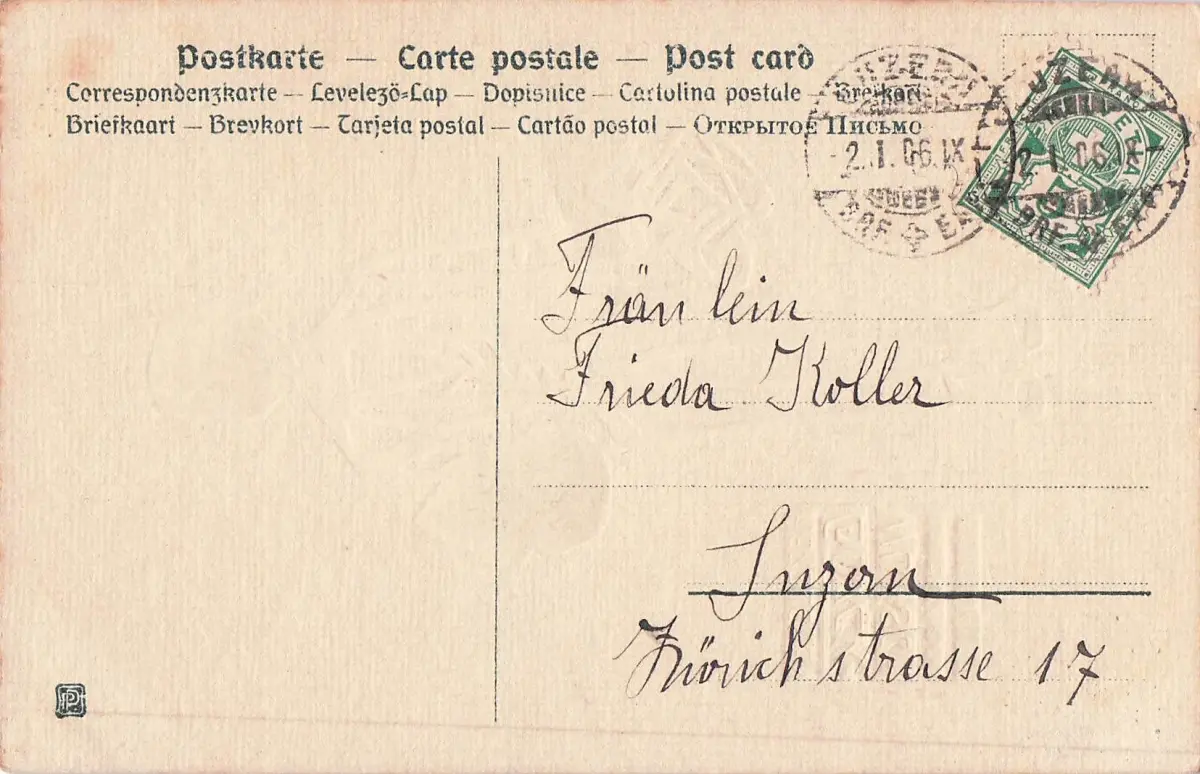 Postkarte — Carte postale — Post card
Correspondenzkarte — Levelezö=Lap — Dopisnice — Cartolina postale — Brefkort
Briefkaart — Brevkort — Tarjeta postal — Cartão postal — Открытое Письмо
LUZERN
2.I.06.IX
BRF.
LUZERN
2.I.06.IX
BRF.
HELVETIA
5
Fräulein
Frieda Koller
Luzern
Zürichstrasse 17
PP